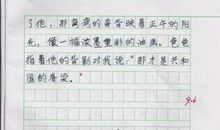 了他，那黄鹤的脊背映着正午的阳
光，像一幅浓墨重彩的油画。爸爸
指着他的背影对我说："那才是共和
国的脊梁。"